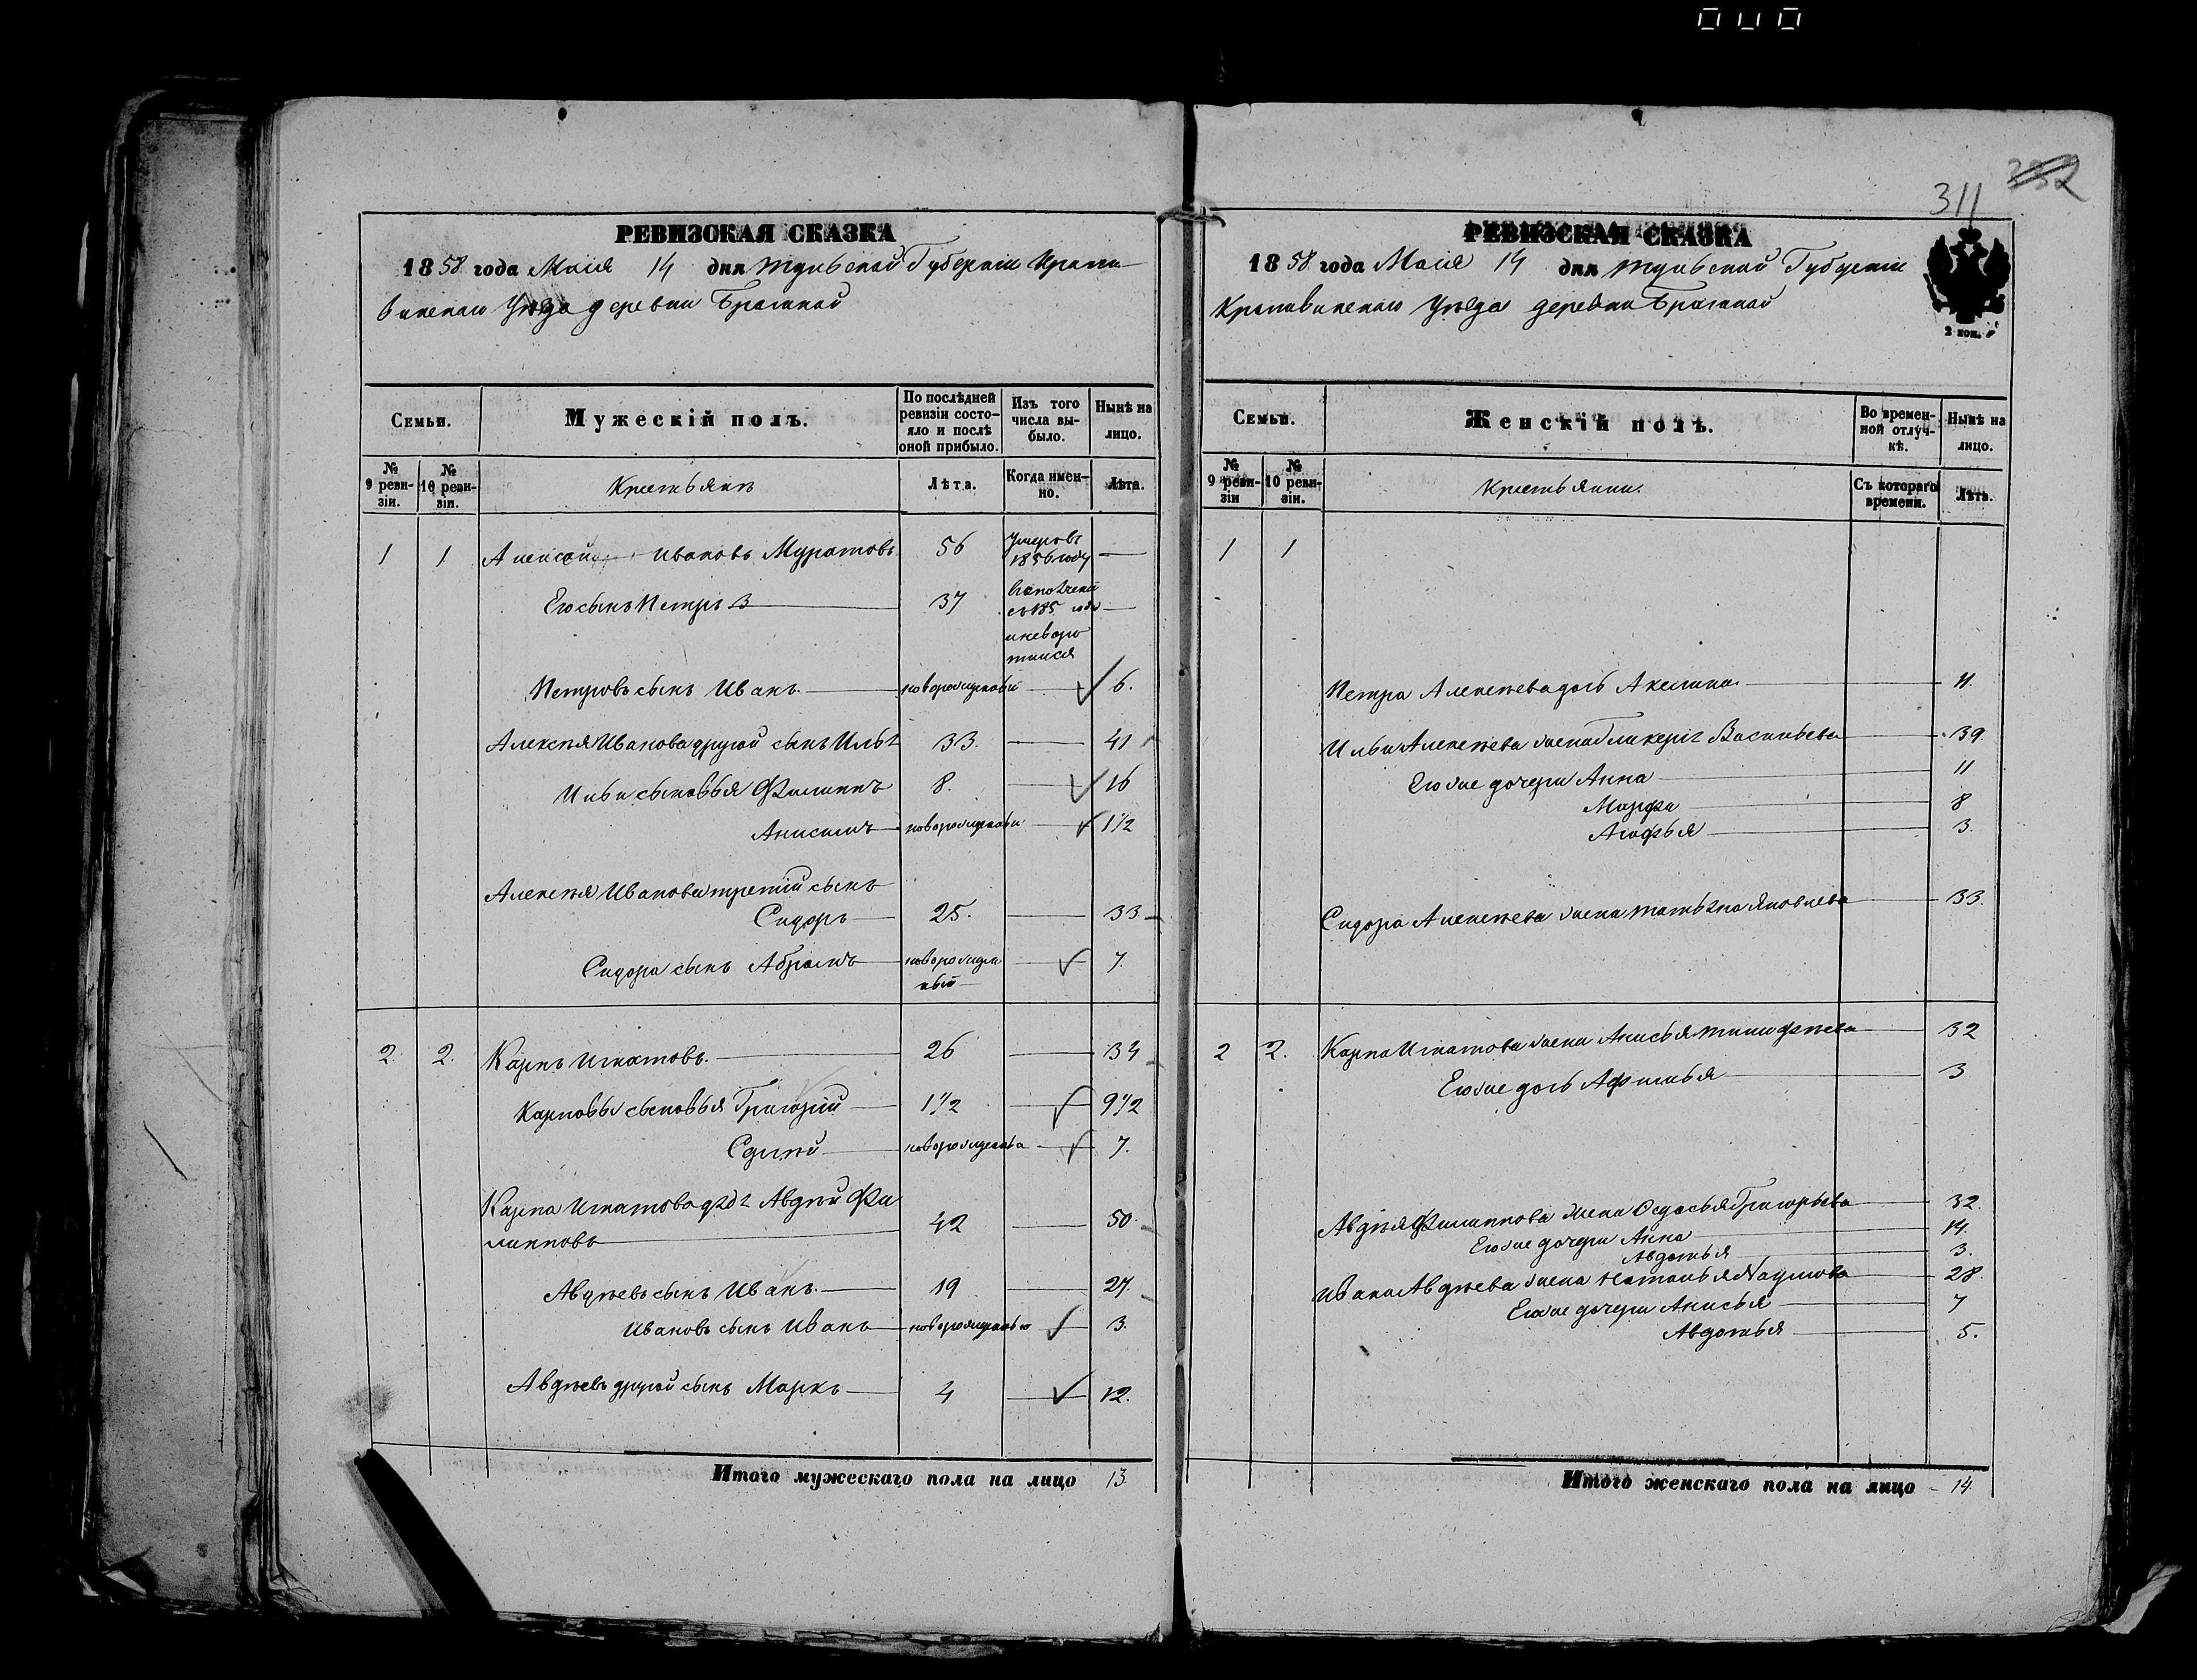 311
РЕВИЗСКАЯ СКАЗКА
1858 года Маия 14 дня Тульской Губернии Крапи-
винскаго Уѣзда деревни
Семьи.
Мужескій полъ.
По послѣдней ревизіи состо-
яло и послѣ оной прибыло.
Изъ того числа вы-
было.
Нынѣ на лицо.
№ 9 реви-
зіи.
№ 10 реви-
зіи.
Крестьяне
Лѣта.
Когда имен-
но.
Лѣта.
1 1 Алексей Ивановъ Муратовъ 56 Умеръ въ 1856 году —
Его сынъ Петръ 37 185 году
и неворо
тился
Петровъ сынъ Иванъ новорожденный 6.
Алексѣя Иванова другой сынъ Илья 33. 41
Ильи сыновья Филиппъ 8. 16
Анисимъ новорожденный 1 1/2
Алексѣя Иванова третий сынъ
Сидоръ 25. 33
Сидора сынъ Абрамъ новорожден
ный 7.
2. 2. Карпъ Игнатовъ. 26 34
Карповы сыновья Григорий 1 1/2 9 1/2
новорожденный 7.
Карпа Игнатова дядя Авдѣй Фи
липповъ 42 50.
Авдѣевъ сынъ Иванъ. 19 27.
Ивановъ сынъ Иванъ новорожденный 3.
Авдѣевъ другой сынъ Маркъ 4 12.
Итого мужескаго пола на лицо 13.
РЕВИЗСКАЯ СКАЗКА
1858 года Маия 14 дня Тульской Губернии
Крапивинскаго Уѣзда деревни
2 коп.
Семьи.
Женскій полъ.
Во времен-
ной отлуч-
кѣ.
Нынѣ на лицо.
№ 9 реви-
зіи
№ 10 реви-
зіи.
Крестьянки.
Съ котораго времени.
Лѣта.
1 1
Петра Алексѣева дочь Акелина 11.
Ильи Алексѣева жена Гликерия Васильева 39.
Его же дочери Анна 11
Марфа 8
Агафья 3.
Сидора Алексѣева жена Татьяна Яковлева 33.
2 2. Карпа Игнатова жена Анисья Тимофѣева 32
Его же дочь Афимья 3
Авдѣя Филиппова жена Федосья Григорьева 32.
Его же дочери Анна 14
Авдотья 3.
Ивана Авдѣева жена Наталья Наумова 28.
Его же дочери Анисья 7
Авдотья 5.
Итого женскаго пола на лицо 14.